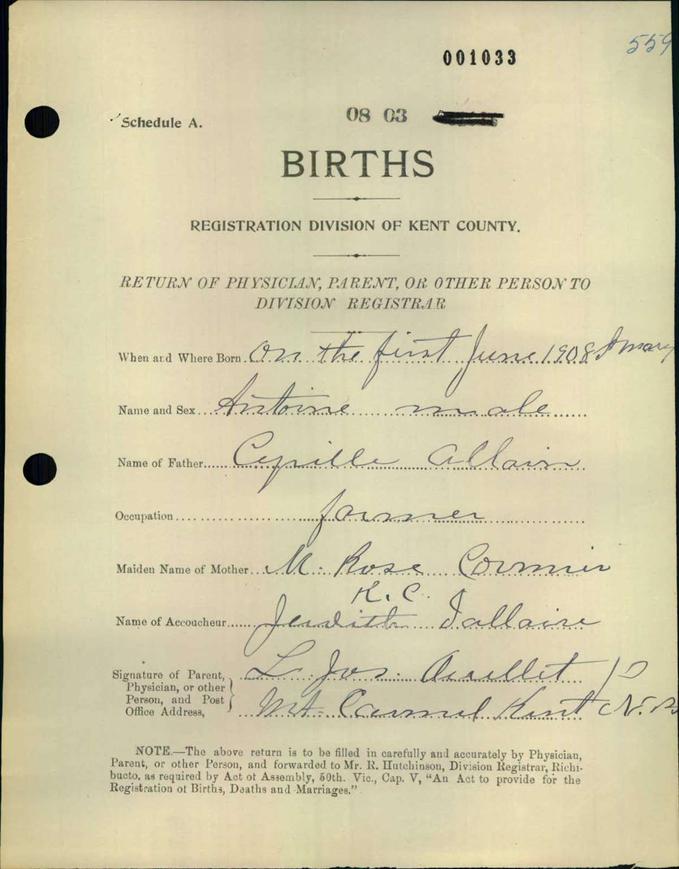 559
001033
Schedule A.
08 03
BIRTHS
REGISTRATION DIVISION OF KENT COUNTY.
RETURN OF PHYSICIAN, PARENT, OR OTHER PERSON TO
DIVISION REGISTRAR
When and Where Born. On the first June 1908 St mary
Name and Sex... Antoine male
Name of Father..... Cyrille Allain
Occupation ........ farmer
Maiden Name of Mother... M. Rose Cormier
K. C.
Name of Accoucheur......
Signature of Parent, Physician, or other Person, and Post Office Address, L Jos. Ouellet P
Mt. Carmel Kent Co N. B
NOTE.—The above return is to be filled in carefully and accurately by Physician,
Parent, or other Person, and forwarded to Mr. R. Hutchinson, Division Registrar, Richi-
bucto, as required by Act of Assembly, 50th. Vic., Cap. V, "An Act to provide for the
Registration of Births, Deaths and Marriages."